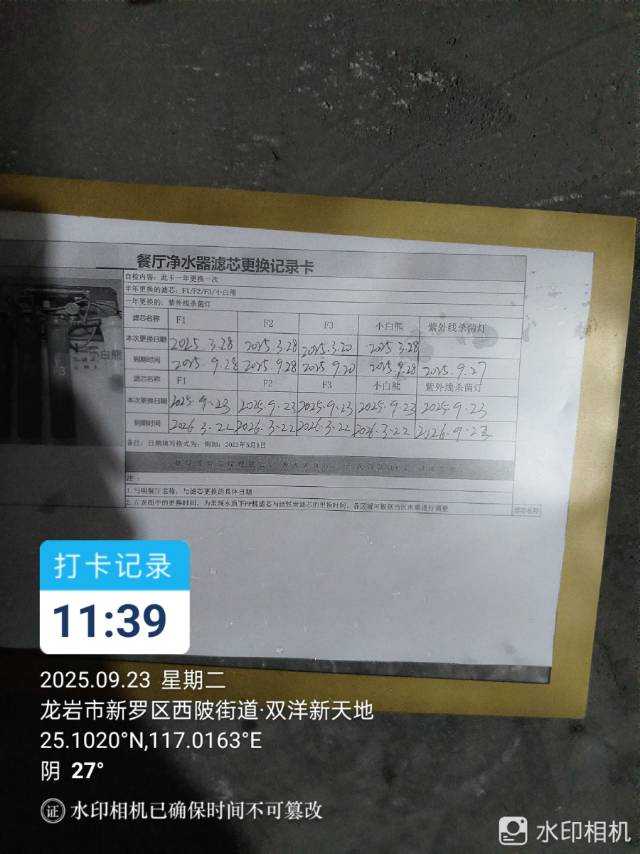 餐厅净水器滤芯更换记录卡
自检内容：此卡一年更换一次
半年更换的滤芯：F1/F2/F3/小白熊
一年更换的：紫外线杀菌灯
滤芯名称 F1 F2 F3 小白熊 紫外线杀菌灯
本次更换日期 2025 3.28 2025.3.28 2025.3.20 2025 3.28
到期时间 2025.9.28 2025.9.28 2025.9.20 2025.9.28 2025.9.27
滤芯名称 F1 F2 F3 小白熊 紫外线杀菌灯
本次更换日期 2025.9.23 2025.9.23 2025.9.23 2025.9.23 2025.9.23
到期时间 2026.3.22 2026.3.22 2026.3.22 2026.3.22 2026.9.23
备注：日期填写格式为：例如：2022年5月1日
注：
1.写明餐厅名称，与滤芯更换的具体日期
滤芯名称
小白熊
F3
打卡记录
11:39
2025.09.23 星期二
龙岩市新罗区西陂街道·双洋新天地
25.1020°N,117.0163°E
阴 27°
证 水印相机已确保时间不可篡改
水印相机